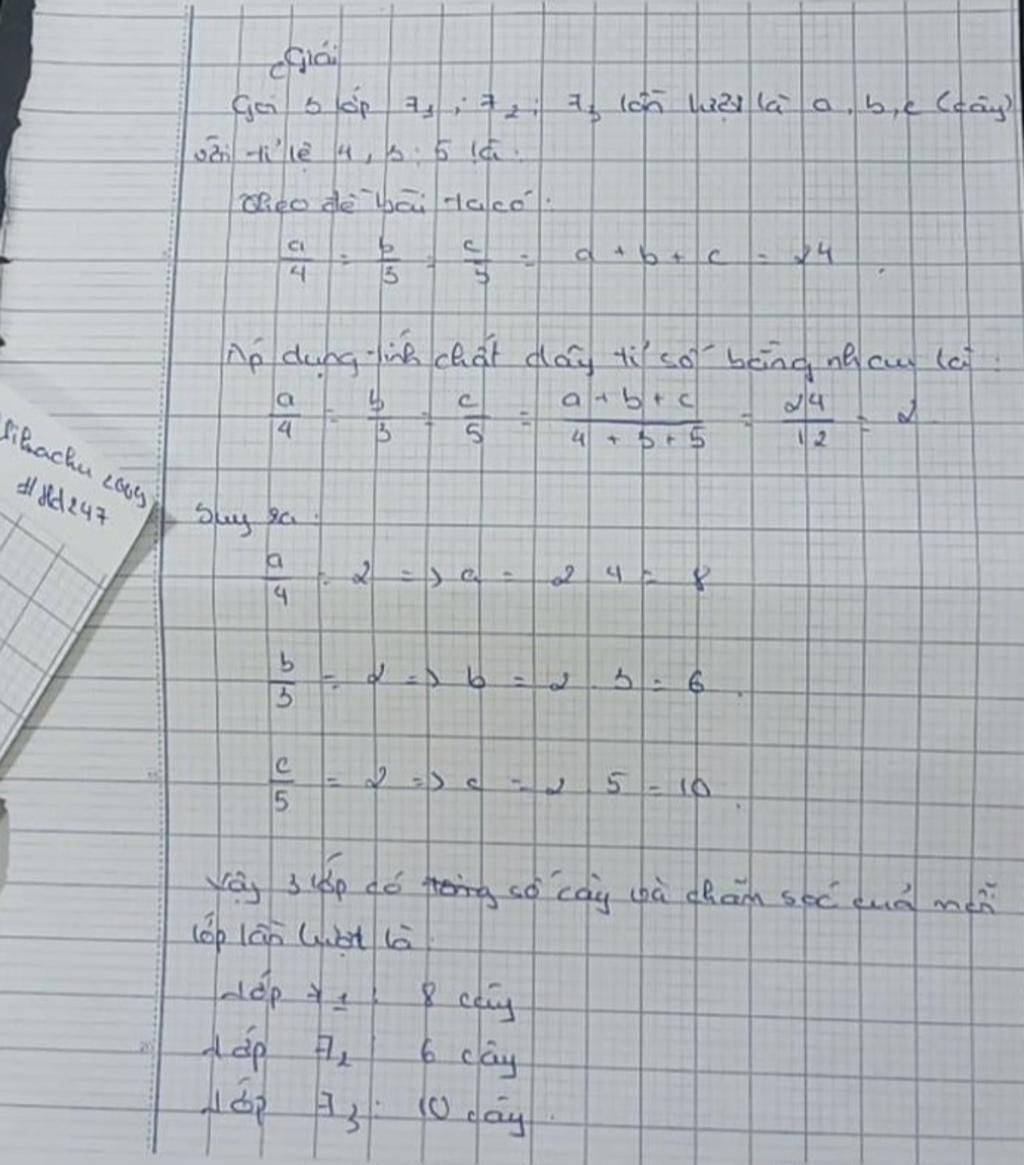 Giải
Gọi 3 lớp 7₁ ; 7₂ ; 7₃ lần lượt là a, b, c (cây)
với tỉ lệ 4, 3 : 5 là.
Theo đề bài ta có :
a/4 = b/3 = c/5 = a + b + c = 24 .
Áp dụng tính chất dãy tỉ số bằng nhau là :
a/4 = b/3 = c/5 = (a + b + c)/(4 + 3 + 5) = 24/12 = 2
Suy ra :
a/4 = 2 => a = 2 4 = 8
b/3 = 2 => b = 2 . 3 = 6 .
c/5 = 2 => c = 2 5 = 10 .
Vậy 3 lớp đó trồng số cây và chăm sóc quả mỗi
lớp lần lượt là
Lớp 7₁ : 8 cây
Lớp 7₂ : 6 cây
Lớp 7₃ : 10 cây .